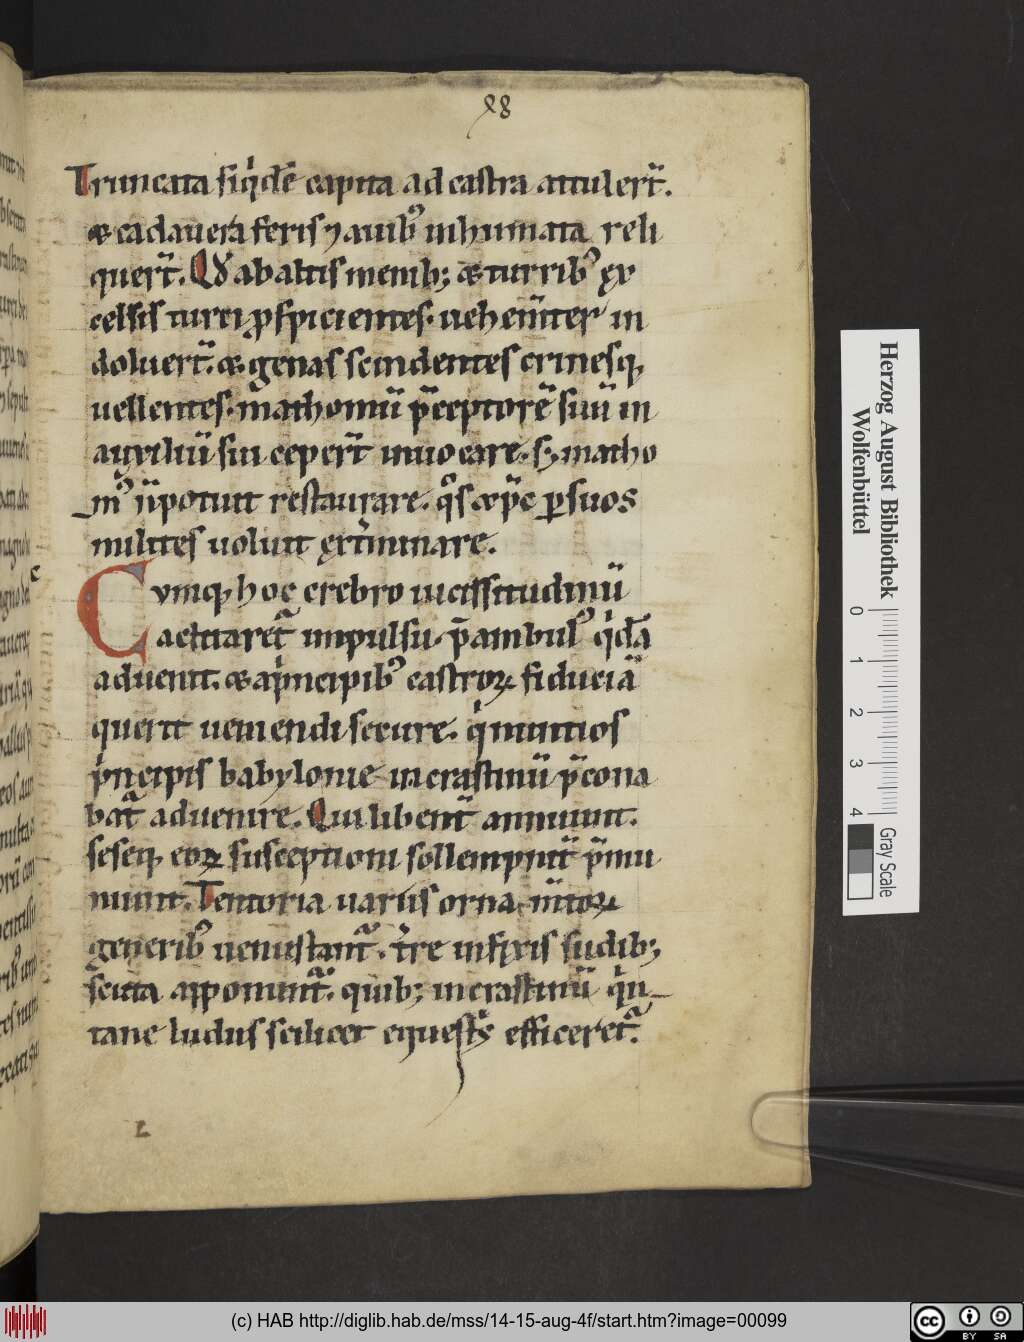 28
Truncata siq̇dē capita ad castra attulert̃.
& cadauera feris ⁊ auibꝰ inhumata reli
quert̃. Qd̃ ab altis menibꝫ & turribꝰ ęx
celsis turci ꝓspicientes. uehem̃ter in
doluert̃. & genas scindentes crinesqꝫ
uellentes. mathomū p̃ceptorē suū in
auxiliū sui cepert̃ inuocare. sꝫ matho
mꝰ ñ potuit restaurare. qͦs & p̃e ꝑ suos
milites uoluit ęxt̃minare.
Cvmqꝫ hoc crebro uicissitudinū
actitaret̃ impulsu. p̃ambulꝰ q̇dā
aduenit. & aṗncipibꝰ castroꝝ fiduciā
querit ueniendi secure. q̇ nuntios
ṗncipis babylonie in crastinū p̃cona
bat̃ aduenire. Qui libent̃ annuunt.
seseqꝫ eoꝝ susceptioni sollempnit̃ p̃mu
niunt. Tentoria uariis ornam̃toꝝ
generibꝰ uenustant̃. t̃re infixis sudibꝫ
scuta apponunt̃. quibꝫ in crastinū q̇n
tane ludus scilicet equestṙs efficeret̃.
Herzog August Bibliothek
Wolfenbüttel
0 1 2 3 4
Gray Scale
(c) HAB http://diglib.hab.de/mss/14-15-aug-4f/start.htm?image=00099
cc BY SA